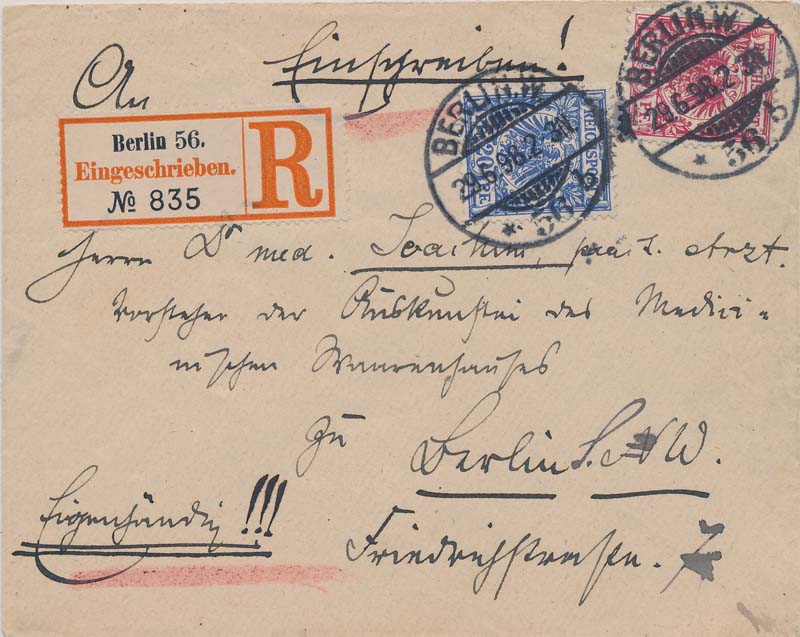 Einschreiben!
An
Berlin 56.
Eingeschrieben.
№ 835
R
BERLIN.W.
29.6.98.2-3N
56
BERLIN.W.
29.6.98.2-3N
56
REICHSPOST
Herrn Dr med. Joachim, prakt. Arzt.
Vorsteher der Auskunftei des Medici-
nischen Waarenhauses
zu
Berlin NW.
Eigenhändig!!!
Friedrichstraße.